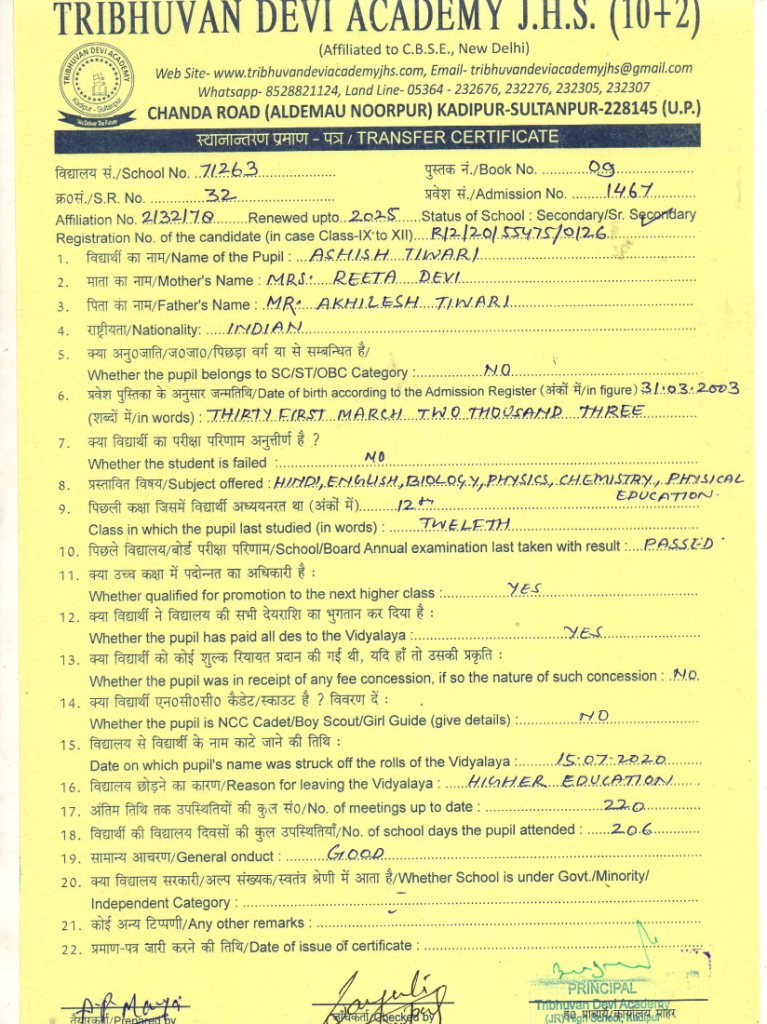 TRIBHUVAN DEVI ACADEMY J.H.S. (10+2)
TRIBHUVAN DEVI ACADEMY
Kadipur - Sultanpur
"We Deliver The Future
(Affiliated to C.B.S.E., New Delhi)
Web Site- www.tribhuvandeviacademyjhs.com, Email- tribhuvandeviacademyjhs@gmail.com
Whatsapp- 8528821124, Land Line- 05364 - 232676, 232276, 232305, 232307
CHANDA ROAD (ALDEMAU NOORPUR) KADIPUR-SULTANPUR-228145 (U.P.)
स्थानान्तरण प्रमाण - पत्र / TRANSFER CERTIFICATE
विद्यालय सं./School No. 71263 पुस्तक नं./Book No. 09
क्र०सं./S.R. No. 32 प्रवेश सं./Admission No. 1467
Affiliation No. 2132178 Renewed upto 2025 Status of School : Secondary/Sr. Secondary
Registration No. of the candidate (in case Class-IX to XII) R/2/20/55475/0126
1. विद्यार्थी का नाम/Name of the Pupil : ASHISH TIWARI
2. माता का नाम/Mother's Name : MRS. REETA DEVI
3. पिता का नाम/Father's Name : MR. AKHILESH TIWARI
4. राष्ट्रीयता/Nationality: INDIAN
5. क्या अनु०जाति/ज०जा०/पिछड़ा वर्ग या से सम्बन्धित है/
Whether the pupil belongs to SC/ST/OBC Category : NO
6. प्रवेश पुस्तिका के अनुसार जन्मतिथि/Date of birth according to the Admission Register (अंकों में/in figure) 31.03.2003
(शब्दों में/in words) : THIRTY FIRST MARCH TWO THOUSAND THREE
7. क्या विद्यार्थी का परीक्षा परिणाम अनुत्तीर्ण है ?
Whether the student is failed : NO
8. प्रस्तावित विषय/Subject offered : HINDI, ENGLISH, BIOLOGY, PHYSICS, CHEMISTRY, PHYSICAL
EDUCATION-
9. पिछली कक्षा जिसमें विद्यार्थी अध्ययनरत था (अंकों में) 12th
Class in which the pupil last studied (in words) : TWELFTH
10. पिछले विद्यालय/बोर्ड परीक्षा परिणाम/School/Board Annual examination last taken with result : PASSED
11. क्या उच्च कक्षा में पदोन्नत का अधिकारी है :
Whether qualified for promotion to the next higher class : YES
12. क्या विद्यार्थी ने विद्यालय की सभी देयराशि का भुगतान कर दिया है :
Whether the pupil has paid all des to the Vidyalaya : YES
13. क्या विद्यार्थी को कोई शुल्क रियायत प्रदान की गई थी, यदि हाँ तो उसकी प्रकृति :
Whether the pupil was in receipt of any fee concession, if so the nature of such concession : NO.
14. क्या विद्यार्थी एन०सी०सी० कैडेट/स्काउट है ? विवरण दें :
Whether the pupil is NCC Cadet/Boy Scout/Girl Guide (give details) : NO
15. विद्यालय से विद्यार्थी के नाम काटे जाने की तिथि :
Date on which pupil's name was struck off the rolls of the Vidyalaya : 15.07.2020
16. विद्यालय छोड़ने का कारण/Reason for leaving the Vidyalaya : HIGHER EDUCATION
17. अंतिम तिथि तक उपस्थितियों की कुल सं०/No. of meetings up to date : 220
18. विद्यार्थी की विद्यालय दिवसों की कुल उपस्थितियाँ/No. of school days the pupil attended : 206
19. सामान्य आचरण/General onduct : GOOD
20. क्या विद्यालय सरकारी/अल्प संख्यक/स्वतंत्र श्रेणी में आता है/Whether School is under Govt./Minority/
Independent Category :
21. कोई अन्य टिप्पणी/Any other remarks :
22. प्रमाण-पत्र जारी करने की तिथि/Date of issue of certificate :
PRINCIPAL
Tribhuvan Devi Academy
(JR) High School, Kadipur
तैयारकर्ता/Prepared by Checked by ह० प्राचार्य/कार्यालय मोहर